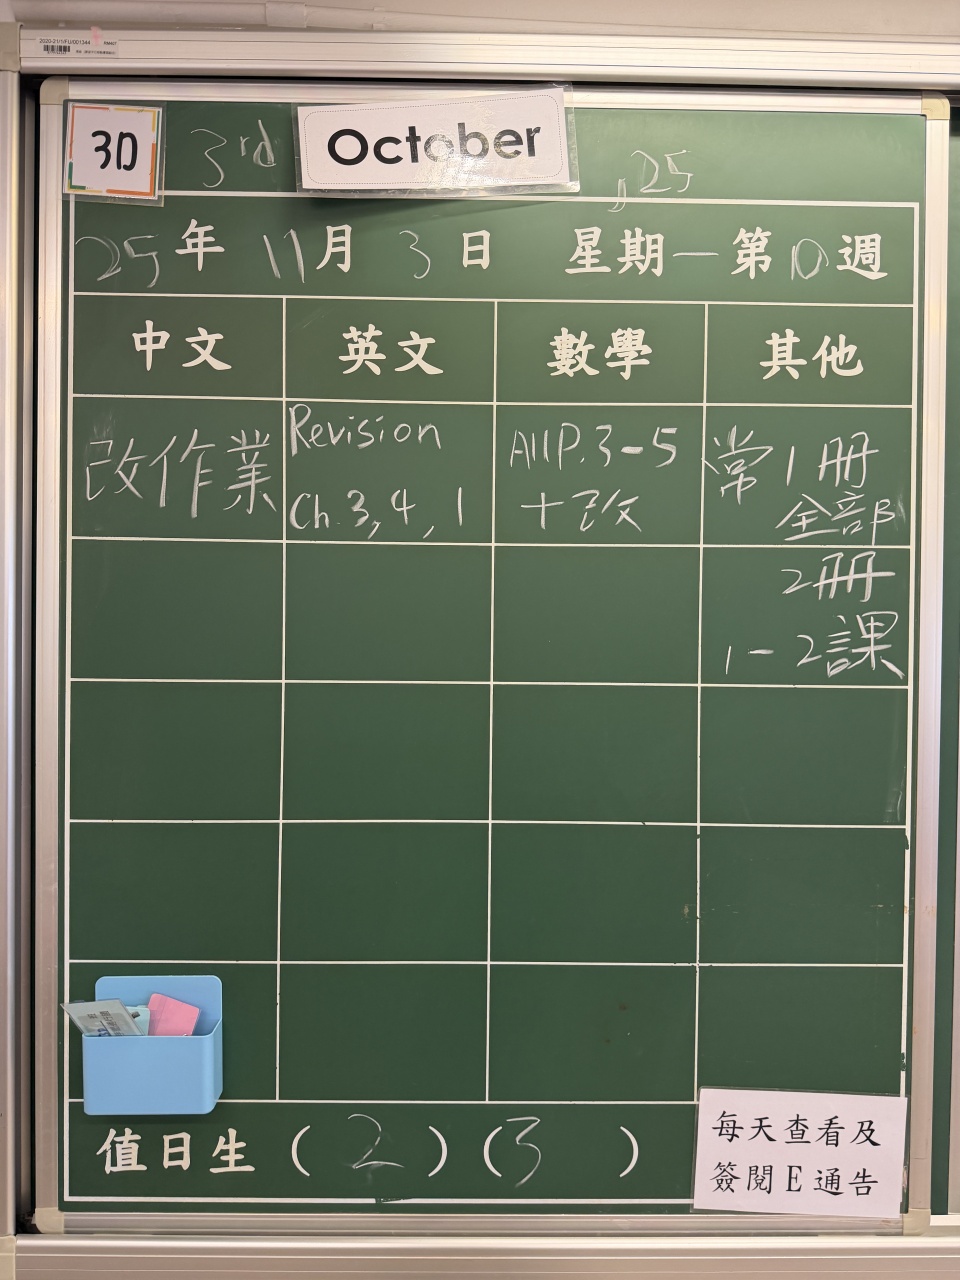 2020-21/1/FU/001344
3D
3rd October , 25
25年 11月 3日 星期一第10週
中文 英文 數學 其他
改作業
Revision
Ch. 3, 4, 1
AllP.3-5
+改
常1冊
全部
2冊
1-2課
值日生 (2) (3)
每天查看及
簽閱E通告